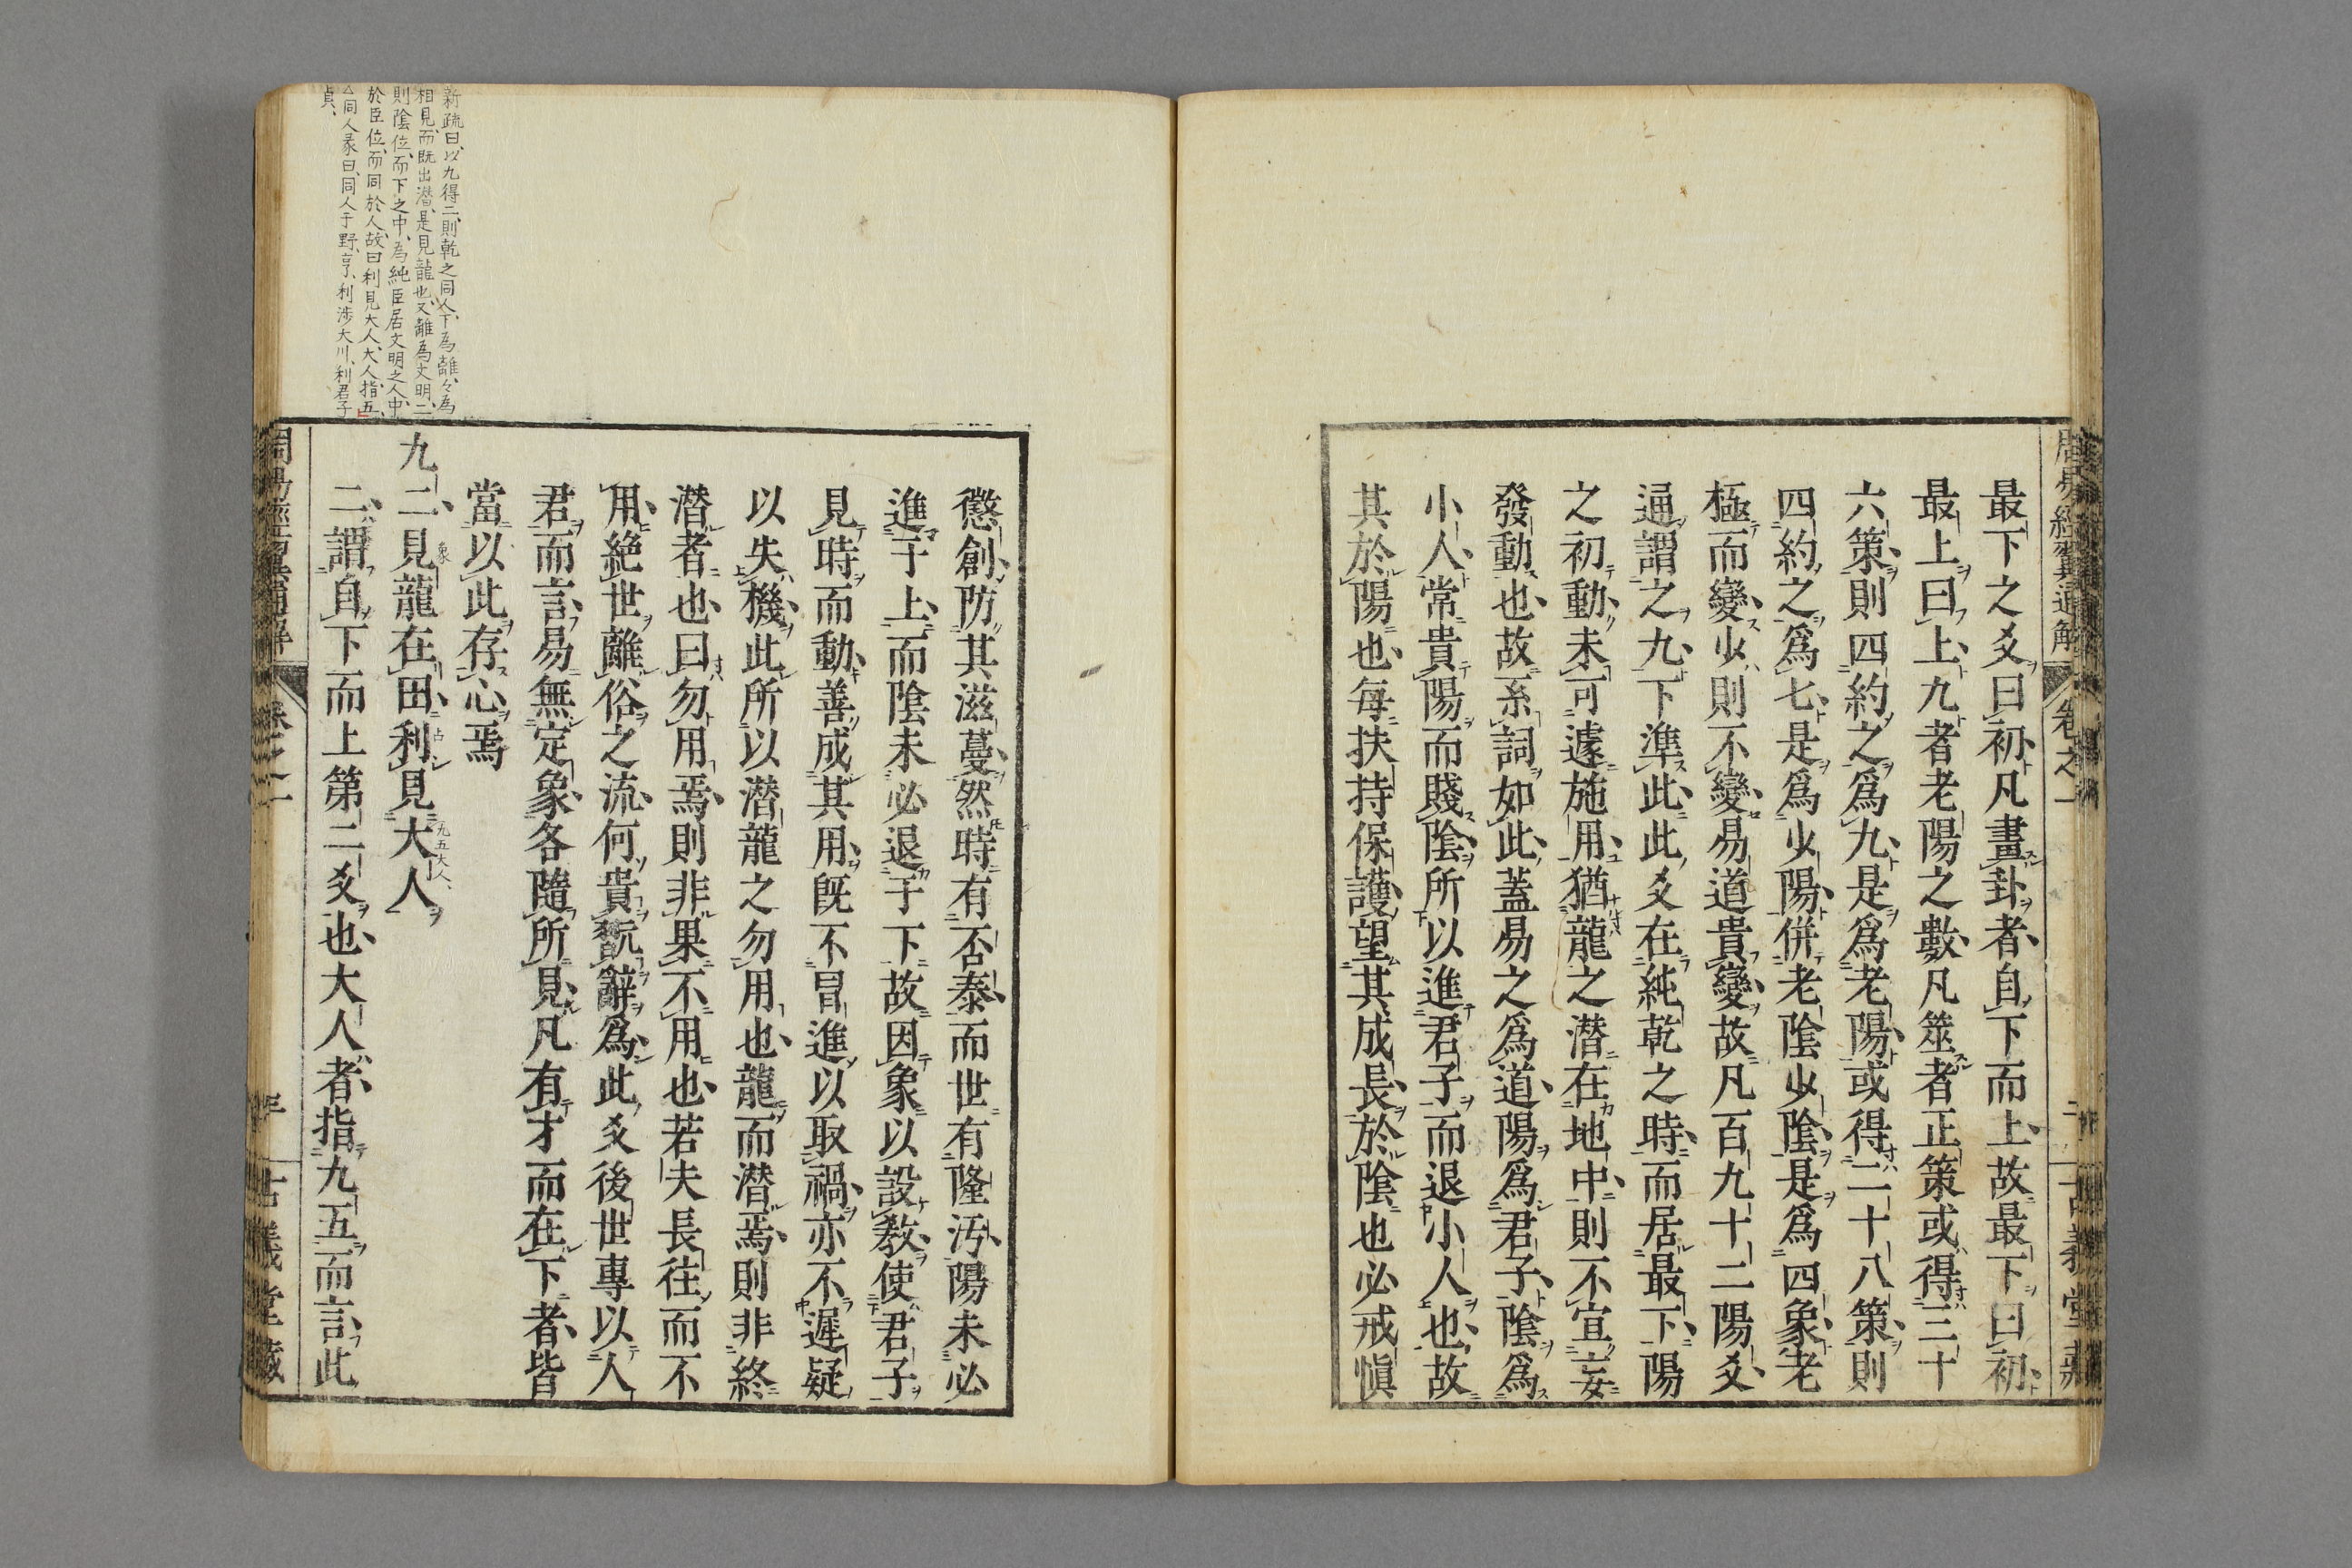 周易經翼通解 卷之一 二 古義堂藏
最下之爻曰初凡畫卦者自下而上故最下曰初
最上曰上九者老陽之數凡筮者正策或得三十
六策則四約之爲九是爲老陽或得二十八策則
四約之爲七是爲少陽併老陰少陰是爲四象老
極而變少則不變易道貴變故凡百九十二陽爻
通謂之九下準此此爻在純乾之時而居最下陽
之初動未可遽施用猶龍之潜在地中則不宜妄
發動也故系詞如此蓋易之爲道陽爲君子陰爲
小人常貴陽而賤陰所以進君子而退小人也故
其於陽也每扶持保護望其成長於陰也必戒愼
懲創防其滋蔓然時有否泰而世有隆汚陽未必
進于上而陰未必退于下故因象以設教使君子
見時而動善成其用既不冒進以取禍亦不遲疑
以失機此所以潜龍之勿用也龍而潜焉則非終
潜者也曰勿用焉則非果不用也若夫長往而不
用絶世離俗之流何貴翫辭爲此爻後世專以人
君而言易無定象各隨所見凡有才而在下者皆
當以此存心焉
九二見龍在田利見大人
象
占
九五大人
二謂自下而上第二爻也大人者指九五而言此
周易經翼通解 卷之一 古義堂藏
新疏曰以九得二則乾之同人下為離々為
相見而既出潜是見龍也又離為文明二
則陰位而下之中為純臣居文明之人中
於臣位而同於人故曰利見大人大人指五
同人彖曰同人于野亨利涉大川利君子
貞